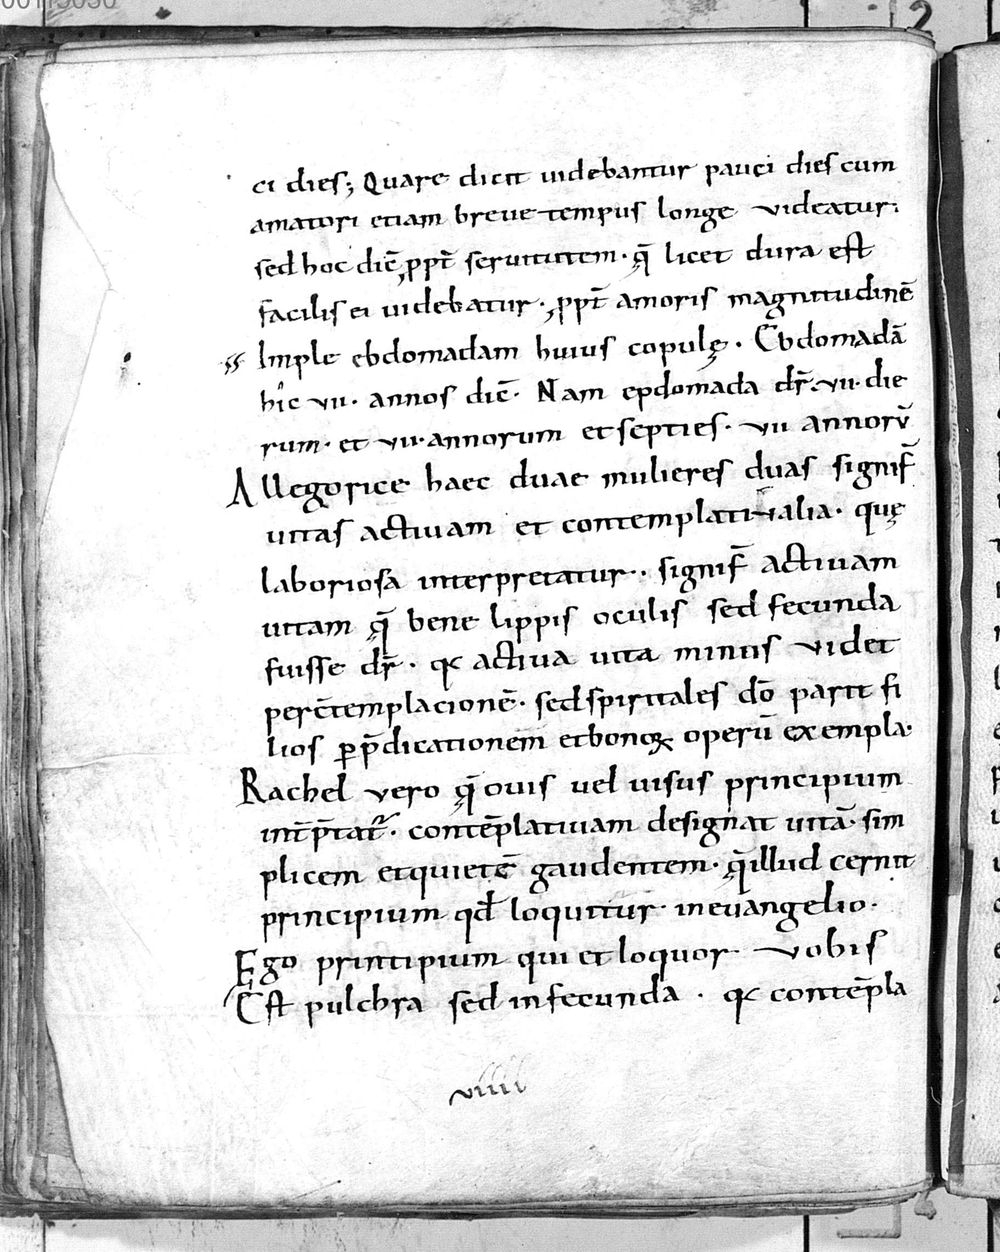 ci dies; Quare dicit uidebantur pauci dies cum
amatori etiam breue tempus longe videatur;
sed hoc diē ꝓpt̄ seruitutem · q̄ licet dura est
facilis ei uidebatur · ꝓpt̄ amoris magnitudinē
Imple ebdomadam huius copulę · Ebdomadā
hic vii · annos diē · Nam epdomada dr̄ · vii · die
rum · et vii · annorum et septies · vii annorū
Allegorice haec duae mulieres duas signif̄
uitas actiuam et contemplati valia · quę
laboriosa interpretatur · signif̄ actiuam
uitam q̄ bene lippis oculis sed fecunda
fuisse dr̄ · qꝛ actiua uita minus videt
per c̄templacionē · sed spiritales dō parit fi
lios ꝑ p̄dicationem et bonoꝝ operū exempla ·
Rachel vero q̄ ouis uel uisus principium
int̄p̄tat᷑ · contēplatiuam designat uitā · sim
plicem et quietē gaudentem · q̄ illud cernit
principium qđ loquitur in euangelio ·
Ego principium qui et loquor vobis
Est pulchra sed infecunda · qꝛ contēpla
viiii